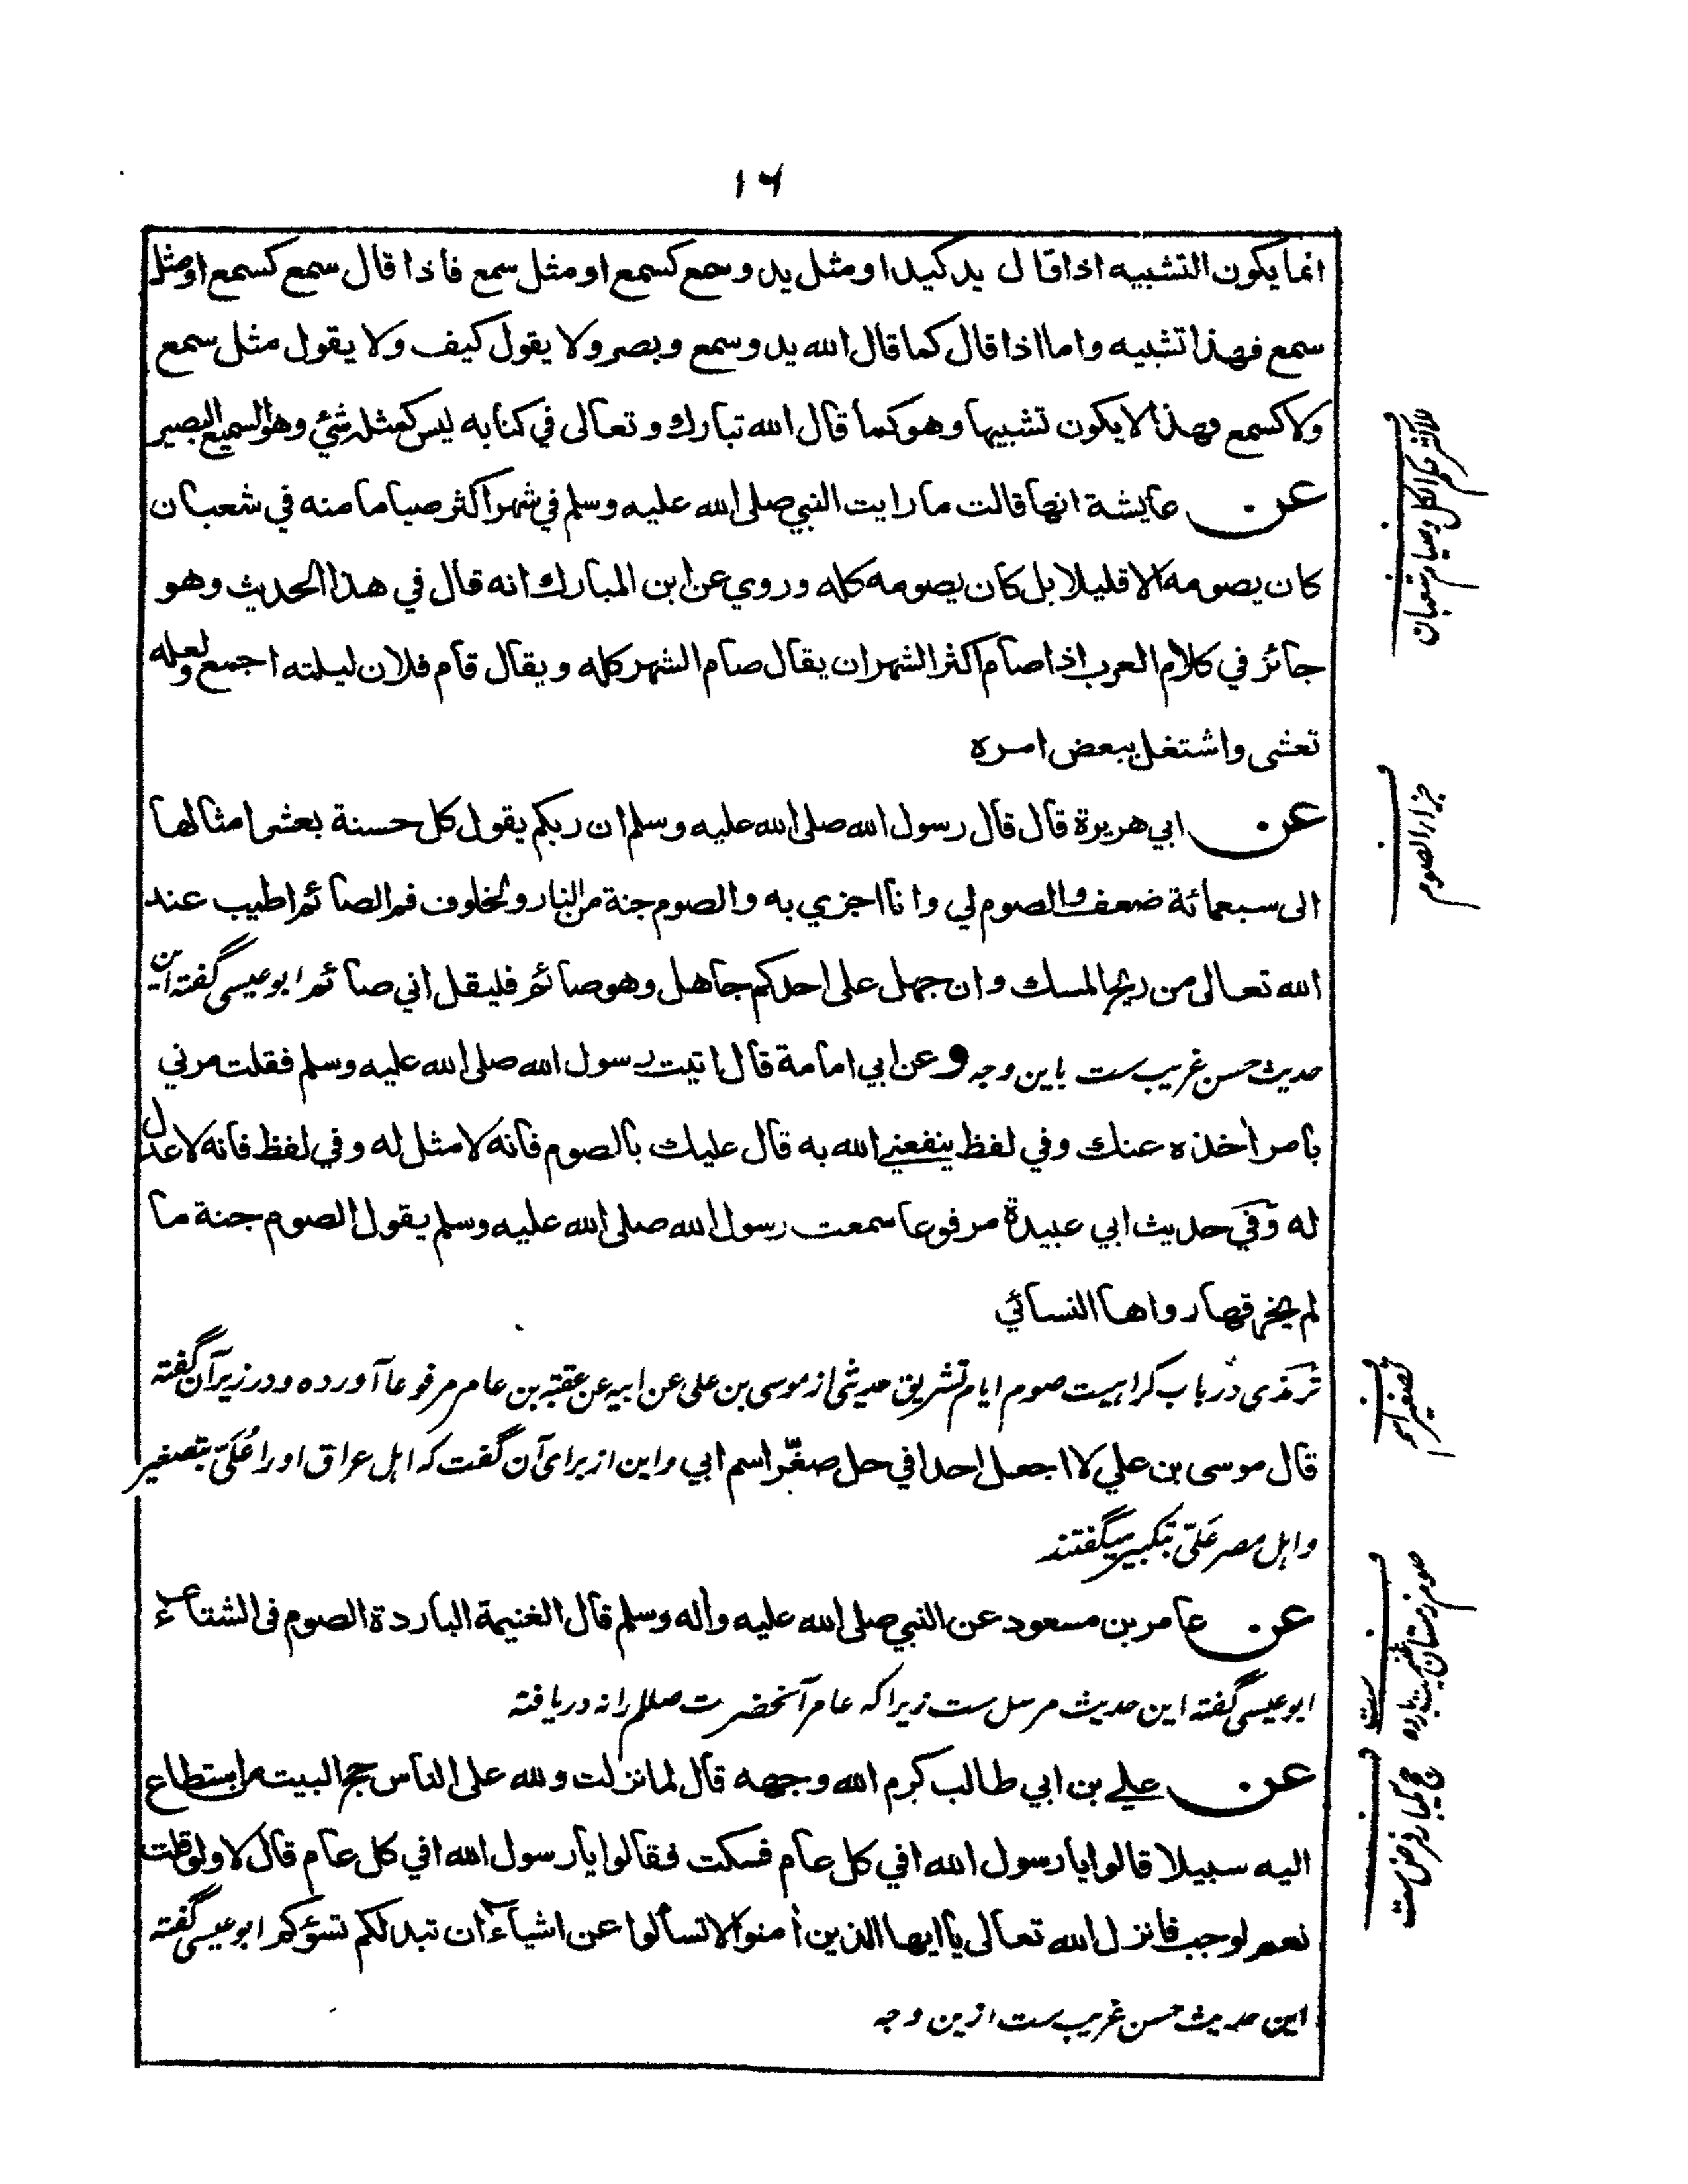 ١٦
انما يكون التشبيه اذا قال يد كيد او مثل يد وسمع كسمع او مثل سمع فاذا قال سمع كسمع او مثل
سمع فهذا تشبيه واما اذا قال كما قال الله يد وسمع وبصر ولا يقول كيف ولا يقول مثل سمع
ولا كسمع فهذا لا يكون تشبيها وهو كما قال الله تبارك وتعالى في كتابه ليس كمثله شئ وهو السميع البصير
عن عايشة انها قالت ما رايت النبي صلى الله عليه وسلم في شهر اكثر صياما منه في شعبان
كان يصومه الا قليلا بل كان يصومه كله وروي عن ابن المبارك انه قال في هذا الحديث وهو
جائز في كلام العرب اذا صام اكثر الشهر ان يقال صام الشهر كله ويقال قام فلان ليلته اجمع ولعله
تعشى واشتغل ببعض امره
عن ابي هريرة قال قال رسول الله صلى الله عليه وسلم ان ربكم يقول كل حسنة بعشر امثالها
الى سبعمائة ضعف والصوم لي وانا اجزي به والصوم جنة من النار ولخلوف فم الصائم اطيب عند
الله تعالى من ريح المسك وان جهل على احدكم جاهل وهو صائم فليقل اني صائم ابو عیسی گفته این
حدیث حسن غریب ست باین وجه وعن ابي امامة قال اتيت رسول الله صلى الله عليه وسلم فقلت مرني
بامر اخذه عنك وفي لفظ ينفعني الله به قال عليك بالصوم فانه لا مثل له وفي لفظ فانه لا عدل
له وفي حديث ابي عبيدة مرفوعا سمعت رسول الله صلى الله عليه وسلم يقول الصوم جنة ما
لم يخرقها رواها النسائي
ترمذی در باب کراهیت صوم ایام تشریق حدیثی از موسی بن علی عن ابیه عن عقبه بن عامر مرفوعا آورده و در زیر آن گفته
قال موسى بن علي لا اجعل احدا في حل صغّر اسم ابي و این از برای آن گفت که اهل عراق او را عُلَیّ بتصغیر
و اهل مصر عَلیّ بتکبیر میگفتند
عن عامر بن مسعود عن النبي صلى الله عليه واله وسلم قال الغنيمة الباردة الصوم فى الشتاء
ابو عیسی گفته این حدیث مرسل ست زیرا که عامر آنحضرت صللم را نه دریافته
عن علي بن ابي طالب كرم الله وجهه قال لما نزلت ولله على الناس حج البيت من استطاع
اليه سبيلا قالوا يا رسول الله افي كل عام فسكت فقالوا يا رسول الله افي كل عام قال لا ولو قلت
نعم لوجبت فانزل الله تعالى يا ايها الذين اٰمنوا لا تسألوا عن اشياء ان تبد لكم تسؤكم ابو عیسی گفته
این حدیث حسن غریب ست ازین وجه
ف
وصیام شعبان
ف
جزاء الصوم
ف
تصغیر اسم
ف
صوم زمستان غنیمت بارده
ست
ف
حج یکبار فرض ست